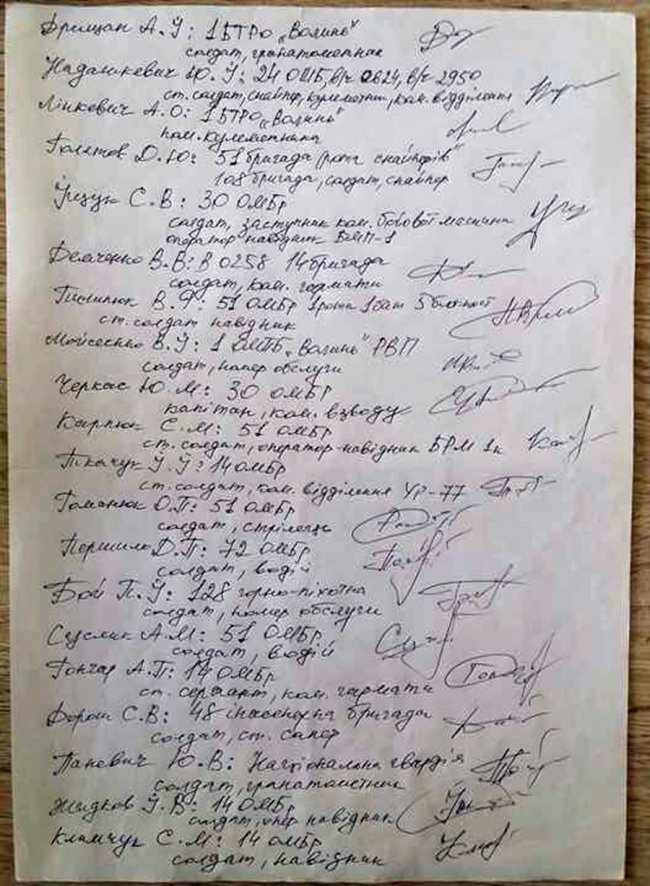 Дрищан А.У: 1БТРо „Волинь"
солдат, гранатометник
Надашкевич Ю.У: 24 ОМБ, в/ч 0824, в/ч 2950
ст. солдат, снайпер, кулеметник, ком. відділення
Лінкевич А.О: 1БТРо „Волинь"
пом. кулеметника
Полетов Д.Ю: 51 бригада (рота снайперів"
108 бригада, солдат, снайпер
Грецук С.В: 30 ОМБр
солдат, заступник ком. бойової машини
оператор навідник БМП-1
Демченко В.В: В 0258 14 бригада
солдат, ком. гармати
В.Ф: 51 ОМБр 1 рота 1 бат 5 блокпост
ст. солдат навідник
Мойсеєнко В.У: 1 „Волинь" РВП
солдат, номер обслуги
Черкас Ю.М: 30 ОМБр
капітан, ком. взводу
Карпюк С.М: 51 ОМБр
ст. солдат, оператор-навідник БРМ 1к
Ткачук У.У: 14 ОМБр
ст. солдат, ком. відділення УР-77
Романюк О.П: 51 ОМБр
солдат, стрілець
Першило Д.П: 72 ОМБр
солдат, водій
Бой П.У: 128 горно-піхотна
солдат, номер обслуги
Суслик А.М: 51 ОМБр
солдат, водій
Гончар А.П: 14 ОМБр
ст. сержант, ком. гармати
Дорош С.В: 48 інженерна бригада
солдат, ст. сапер
Паневич Ю.В: Національна гвардія
солдат, гранатометник
Жидков У.В: 14 ОМБр
солдат, опер навідник
Климчук С.М: 14 ОМБр
солдат, навідник